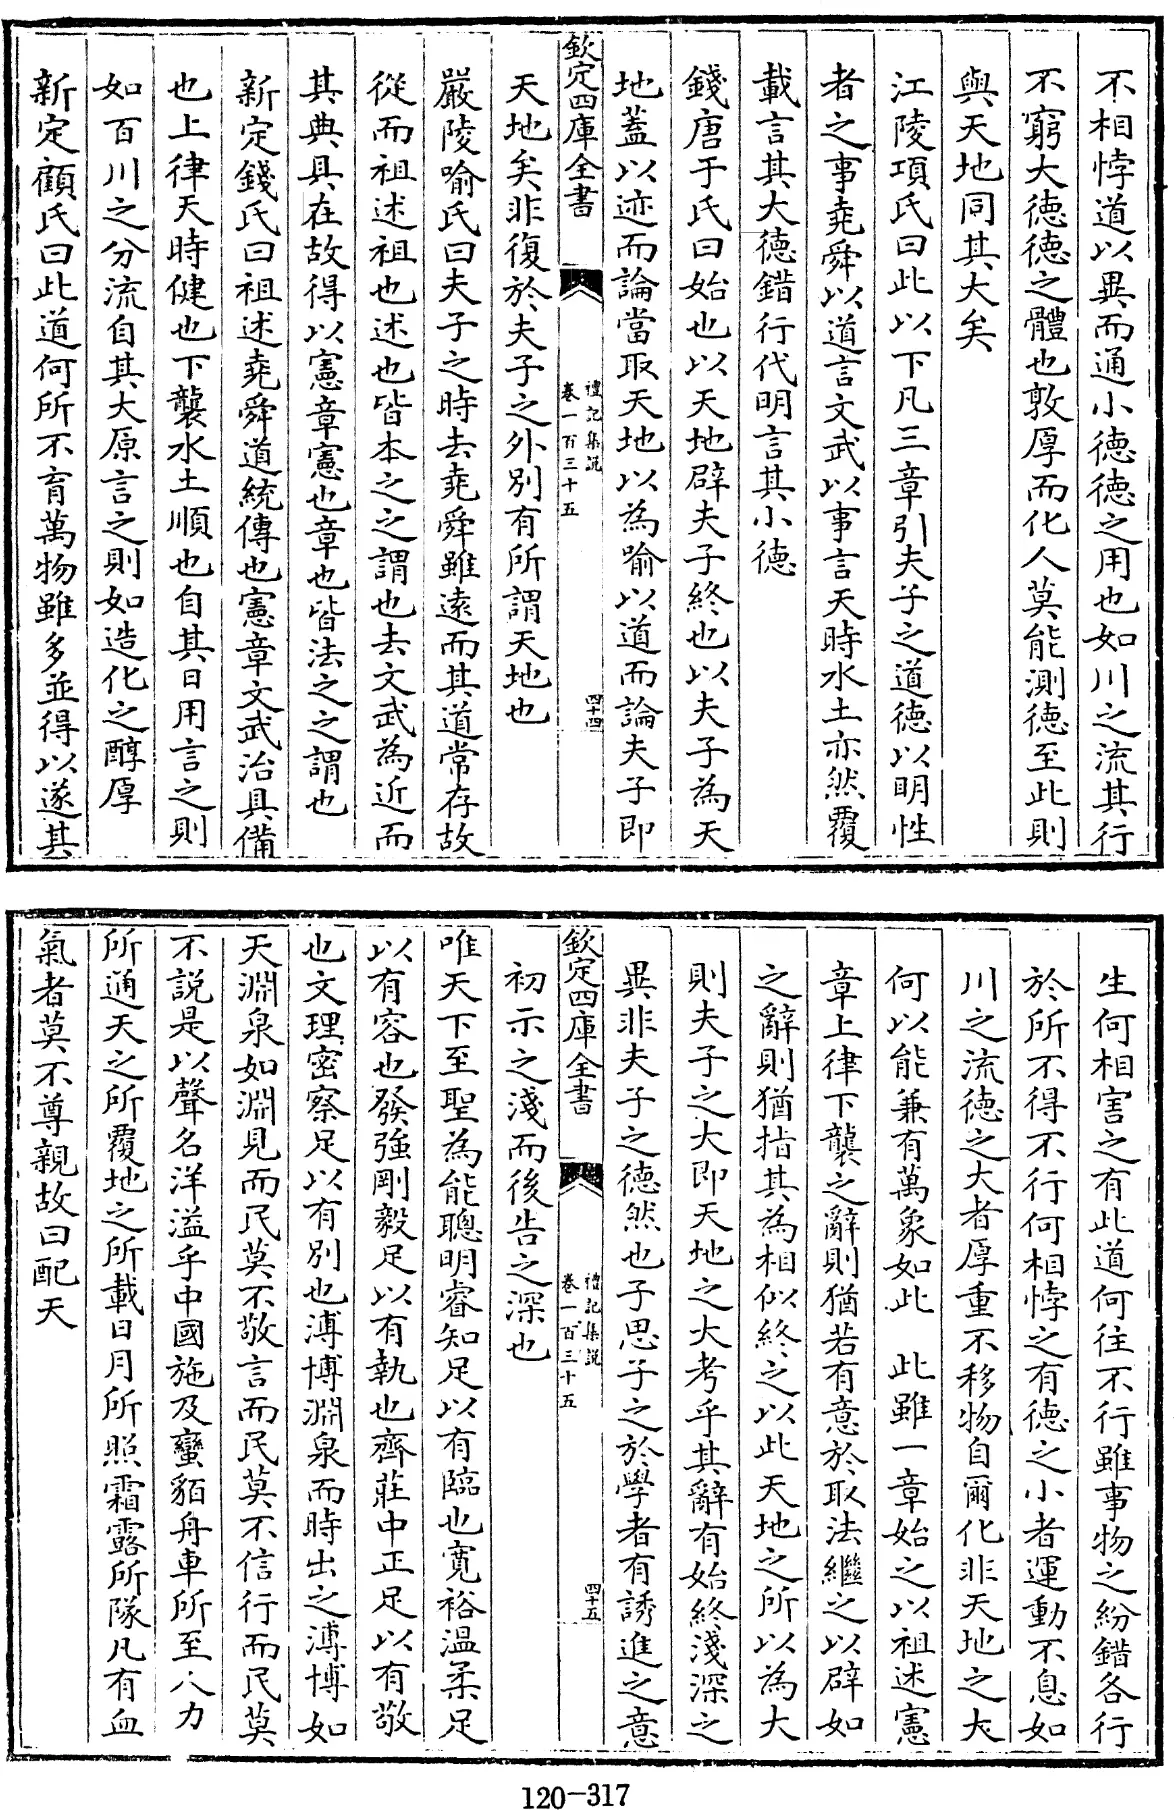 不相悖道以異而通小德德之用也如川之流其行
不窮大德德之體也敦厚而化人莫能測德至此則
與天地同其大矣
江陵項氏曰此以下凡三章引夫子之道德以明性
者之事堯舜以道言文武以事言天時水土亦然覆
載言其大德錯行代明言其小德
錢唐于氏曰始也以天地辟夫子終也以夫子為天
地蓋以迹而論當取天地以為喻以道而論夫子即
欽定四庫全書
禮記集說
卷一百三十五
四十四
天地矣非復於夫子之外別有所謂天地也
嚴陵喻氏曰夫子之時去堯舜雖遠而其道常存故
從而祖述祖也述也皆本之之謂也去文武為近而
其典具在故得以憲章憲也章也皆法之之謂也
新定錢氏曰祖述堯舜道統傳也憲章文武治具備
也上律天時健也下襲水土順也自其日用言之則
如百川之分流自其大原言之則如造化之醇厚
新定顧氏曰此道何所不育萬物雖多並得以遂其
生何相害之有此道何往不行雖事物之紛錯各行
於所不得不行何相悖之有德之小者運動不息如
川之流德之大者厚重不移物自爾化非天地之大
何以能兼有萬象如此　此雖一章始之以祖述憲
章上律下襲之辭則猶若有意於取法繼之以辟如
之辭則猶指其為相似終之以此天地之所以為大
則夫子之大即天地之大考乎其辭有始終淺深之
異非夫子之德然也子思子之於學者有誘進之意
欽定四庫全書
禮記集說
卷一百三十五
四十五
初示之淺而後告之深也
唯天下至聖為能聰明睿知足以有臨也寬裕溫柔足
以有容也發強剛毅足以有執也齊莊中正足以有敬
也文理密察足以有別也溥博淵泉而時出之溥博如
天淵泉如淵見而民莫不敬言而民莫不信行而民莫
不說是以聲名洋溢乎中國施及蠻貊舟車所至人力
所通天之所覆地之所載日月所照霜露所隊凡有血
氣者莫不尊親故曰配天
120-317